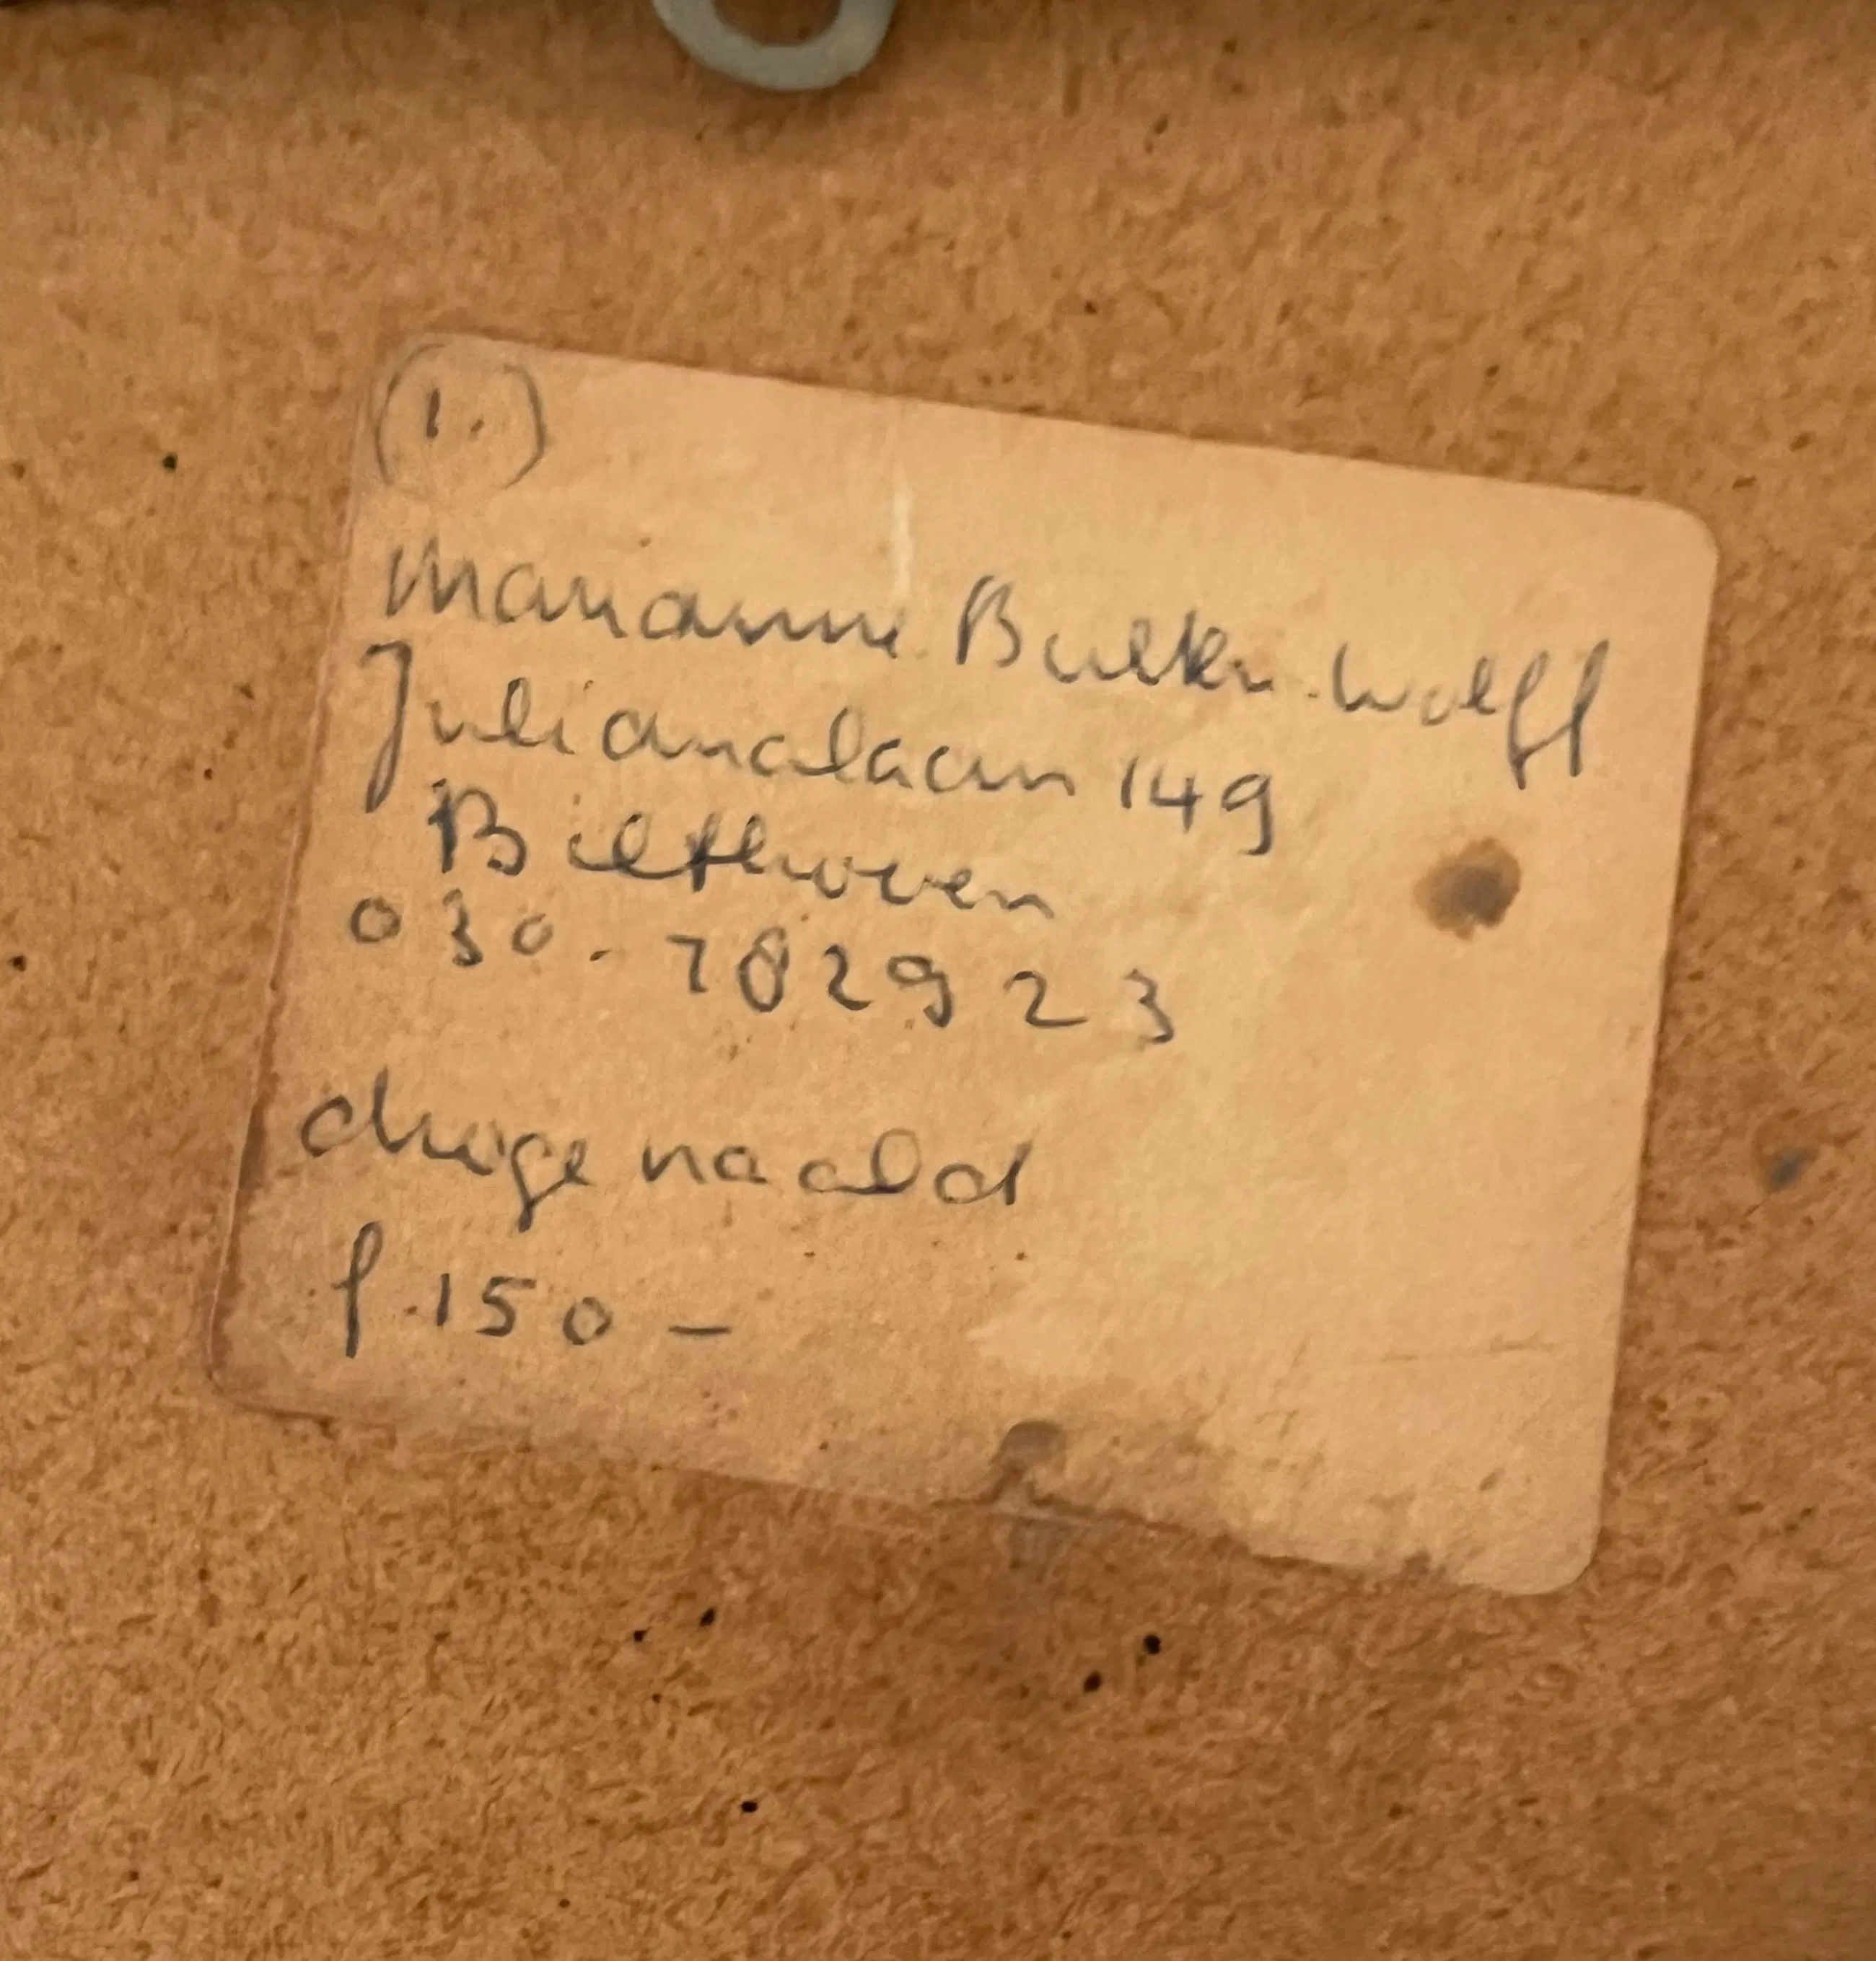 (1.)
Marianne Bulten-Wolff
Julianalaan 149
Bilthoven
030-782923
droge naald
f.150-